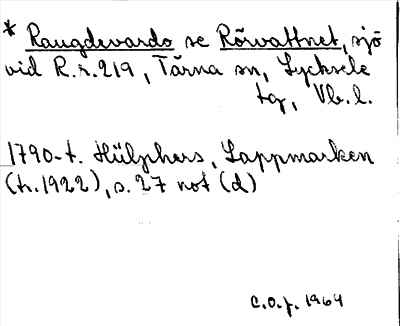 * Raugdevardo se Rörvattnet, sjö
vid R.r. 219, Tärna sn, Lycksele
tg, Vb. l.
1790-t. Hülphers, Lappmarken
(tr. 1922), s. 27 not (d)
C.O.J. 1964